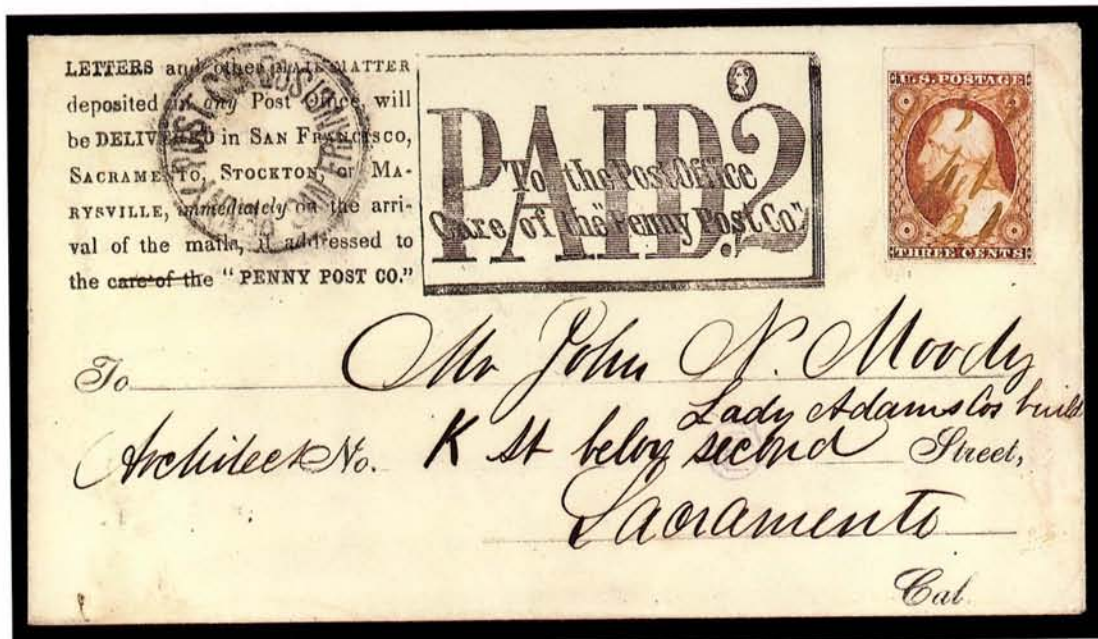 LETTERS and other MAIL MATTER
deposited in any Post Office, will
be DELIVERED in SAN FRANCISCO,
SACRAMENTO, STOCKTON, or MA-
RYSVILLE, immediately on the arri-
val of the mails, if addressed to
the care of the "PENNY POST CO."
PAID.2
To the Post Office
Care of the "Penny Post Co."
U.S. POSTAGE
THREE CENTS
To Mr John N. Moody
Lady Adams Cos build
Architect No. K St below second Street,
Sacramento
Cal.